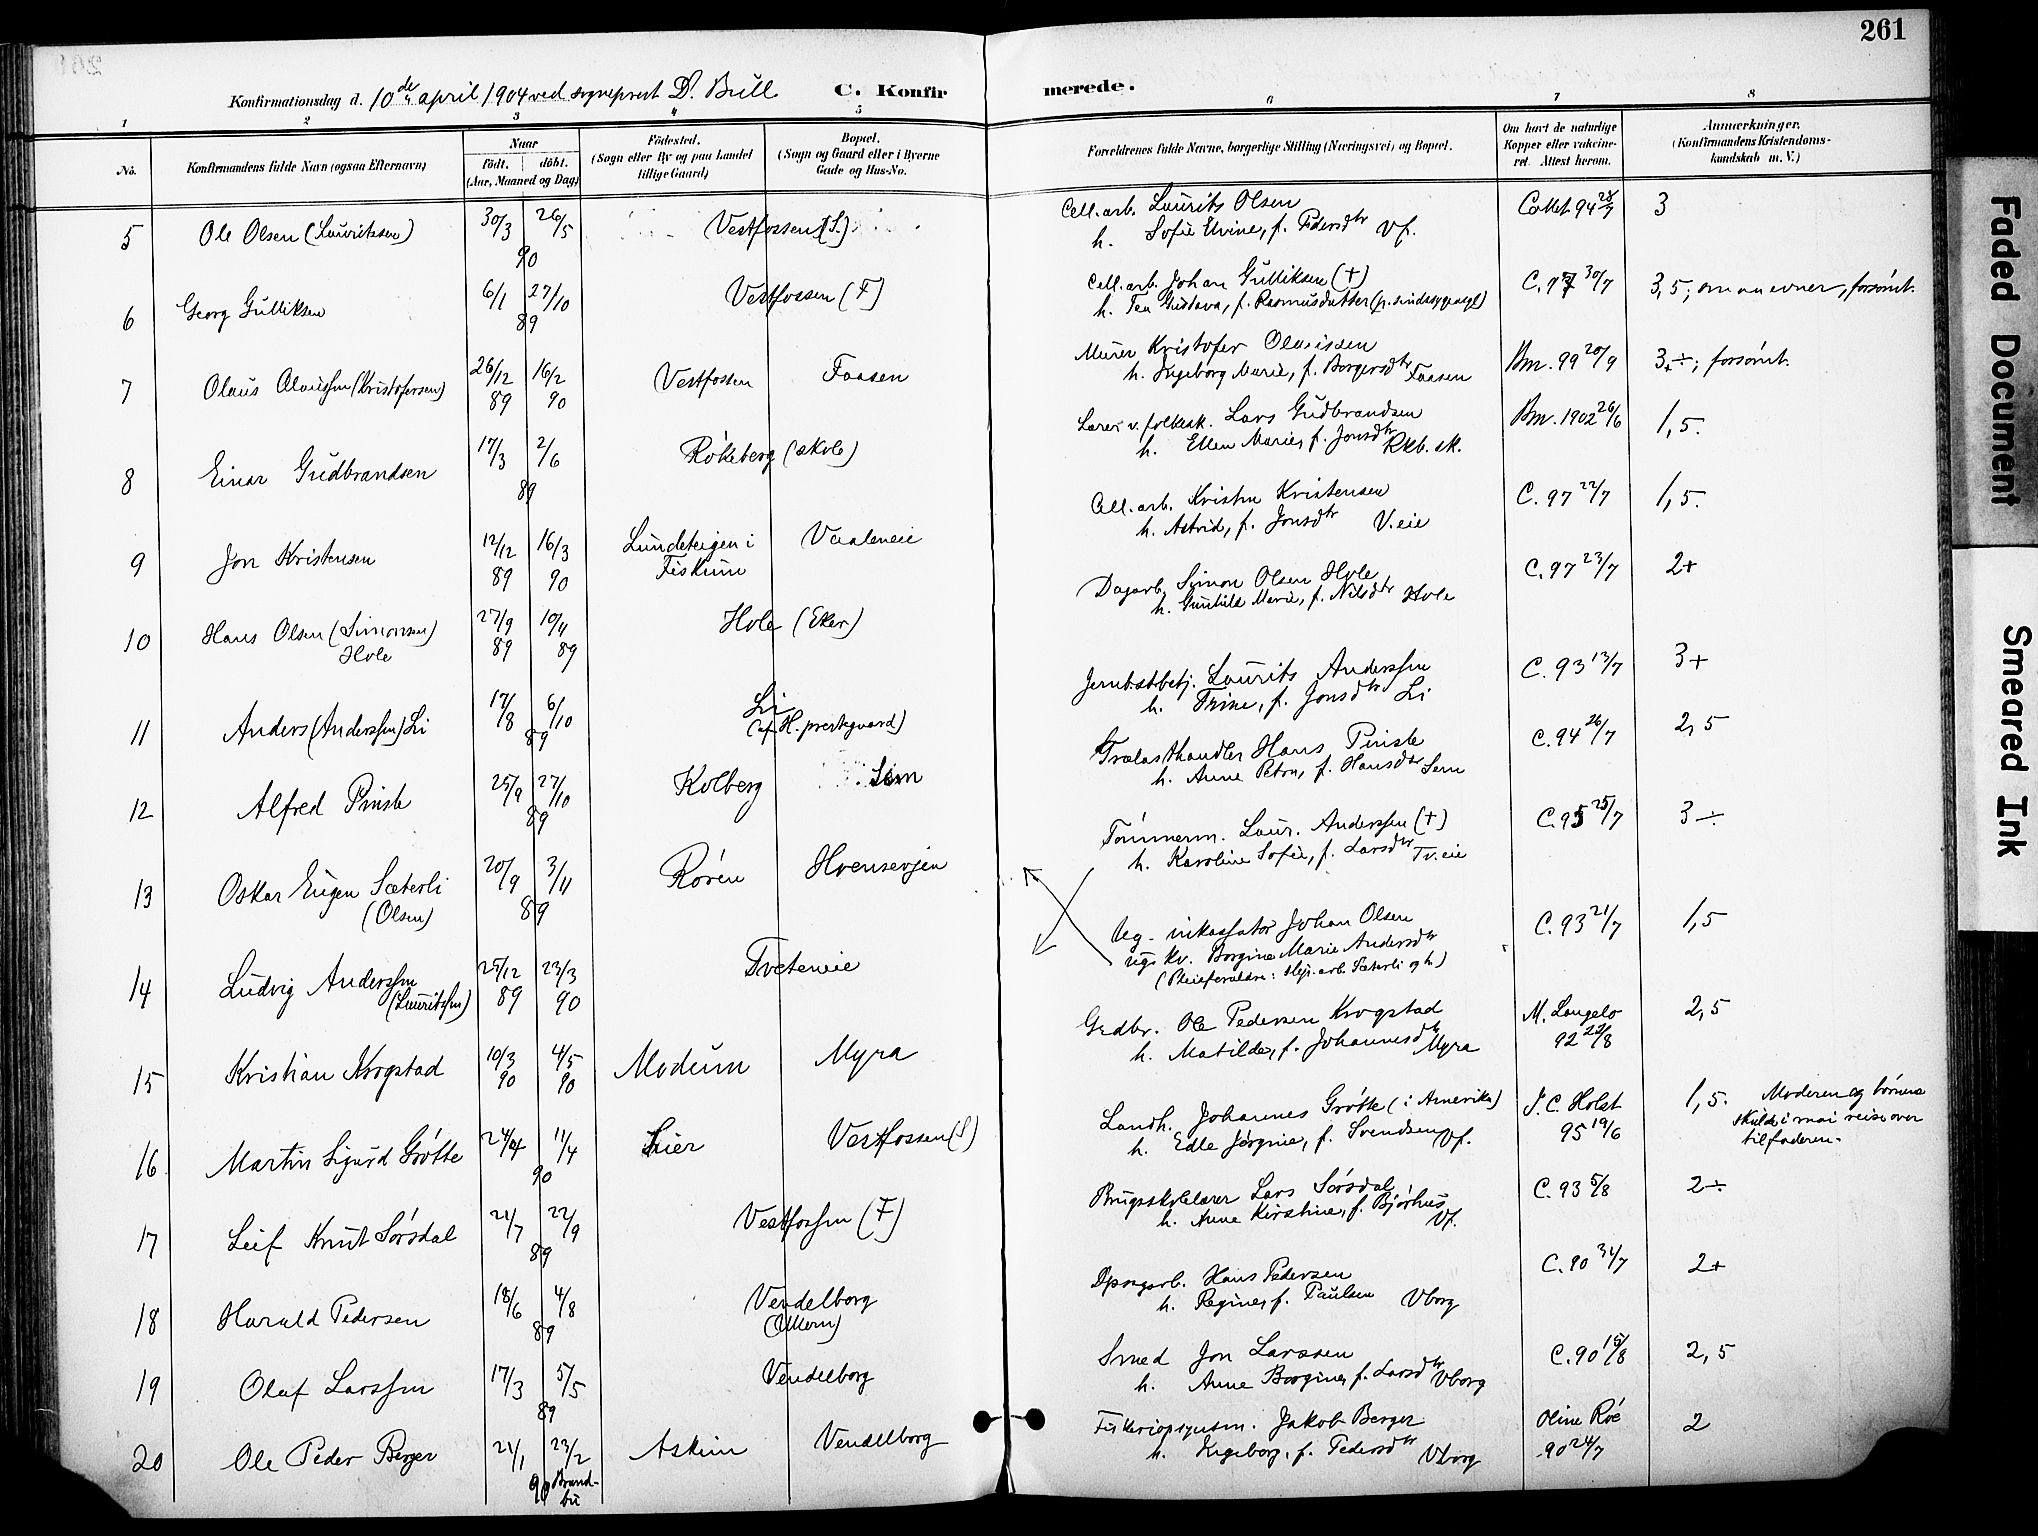 261
Konfirmationsdag d. 10de april 1904 ved sogneprest D. Bull
C. Konfirmerede.
1 2 3 4 5 6 7 8
No.
Konfirmandens fulde Navn (ogsaa Efternavn)
Naar
født. døbt.
(Aar, Maaned og Dag)
Fødested.
(Sogn eller By og paa Landet
tillige Gaard)
Bopæl.
(Sogn og Gaard eller i Byerne
Gade og Hus-No.
Forældrenes fulde Navne, borgerlige Stilling (Næringsvei) og Bopæl.
Om havt de naturlige
Kopper eller vakcine-
ret. Attest herom.
Anmærkninger.
(Konfirmandens Kristendoms-
kundskab m. V.)
5 Ole Olsen (Lauritsen) 30/3 26/5 90 Vestfossen (S.)
Cell.arb. Laurits Olsen
h. Sofie Elvine, f. Pedersdtr Vf.
94 28/7 3
6 Georg Gulliksen 6/1 27/10 89 Vestfossen (F)
Cell.arb. Johan Gulliksen (+)
h. Tea Gustava, f. Rasmusdatter
C. 97 30/7 3,5; forsømt.
7 Olaus Olaussen (Kristofersen) 26/12 89 16/2 90 Vestfossen Faasen
Murer Kristofer Olaissen
h. Ingeborg Marie, f. Borgersdtr Faasen
Bm. 99 20/9 3÷; forsømt.
8 Einar Gudbrandsen 17/3 2/6 89 Røkeberg (skole)
Lærer v. folkesk. Lars Gudbrandsen
h. Ellen Marie, f. Jonsdtr Rkb. sk.
Bm. 1902 26/6 1,5.
9 Jon Kristensen 12/12 89 16/3 90 Lundeteigen i
Fiskum Vaaleneie
Cell.arb. Kristen Kristensen
h. Astrid, f. Jonsdtr V.eie
C. 97 22/7 1,5.
10 Hans Olsen (Simonsen)
Hole 27/9 89 10/11 89 Hole (Eker)
Dagarb. Simon Olsen Hole
h. Gunhild Marie, f. Nilsdtr Hole
C. 97 23/7 2+
11 Anders (Anderssen) Li 17/8 6/10 89 Li
(af H. prestegaard)
Jernb.stbetj. Laurits Anderssen
h. Trine, f. Jonsdtr Li
C. 93 13/7 3+
12 Alfred Pinsle 25/9 27/10 89 Kolberg Sem
Trælasthandler Hans Pinsle
h. Anne Petra, f. Hansdtr Sem
C. 94 26/7 2,5
13 Oskar Eugen Sæterli
(Olsen) 20/9 3/11 89 Røren Hvensevjen
Tømmerm. Laur. Anderssen (+)
h. Karoline Sofie, f. Larsdtr Tv.eie
C. 95 25/7 3÷
14 Ludvig Anderssen
(Lauritssen) 25/12 89 23/3 90 Tveteneie
Ug. inkassator Johan Olsen
ugs kv. Borgine Marie Andersdtr
(Pleieforældre: Høj. arb. Sæterli og h.)
C. 93 21/7 1,5
15 Kristian Krogstad 10/3 90 4/5 90 Modum Myra
Grdbr. Ole Pedersen Krogstad
h. Matilde, f. Johannesdtr Myra
M. Langelo
92 22/8 2,5
16 Martin Sigurd Grøtte 24/4 11/4 90 Lier Vestfossen (S)
Landh. Johannes Grøtte (i Amerika)
h. Edle Jørgine, f. Svendsen Vf.
J. C. Holst
95 19/6 1,5. Moderen og børnene
skulde i mai reise over
til faderen.
17 Leif Knut Sørsdal 21/7 22/9 89 Vestfossen (F)
Brugsskolelærer Lars Sørsdal
h. Anne Kirstine, f. Bjørhus Vf.
C. 93 5/8 2÷
18 Harald Pedersen 18/6 4/8 89 Vendelborg
Hans Pedersen
h. Regine, f. Paulsen Vborg
C. 90 31/7 2+
19 Olaf Larssen 17/3 5/5 89 Vendelborg
Smed Jon Larssen
h. Anne Borgine, f. Larsdtr Vborg
C. 90 15/8 2,5
20 Ole Peder Berger 21/1 23/2 90 Brand-
bu Askim Vendelborg
Fiskeriopsynsm. Jakob Berger
h. Ingeborg, f. Pedersdtr Vborg
Oline Roe
90 24/7 2
Faded Document
Smeared Ink